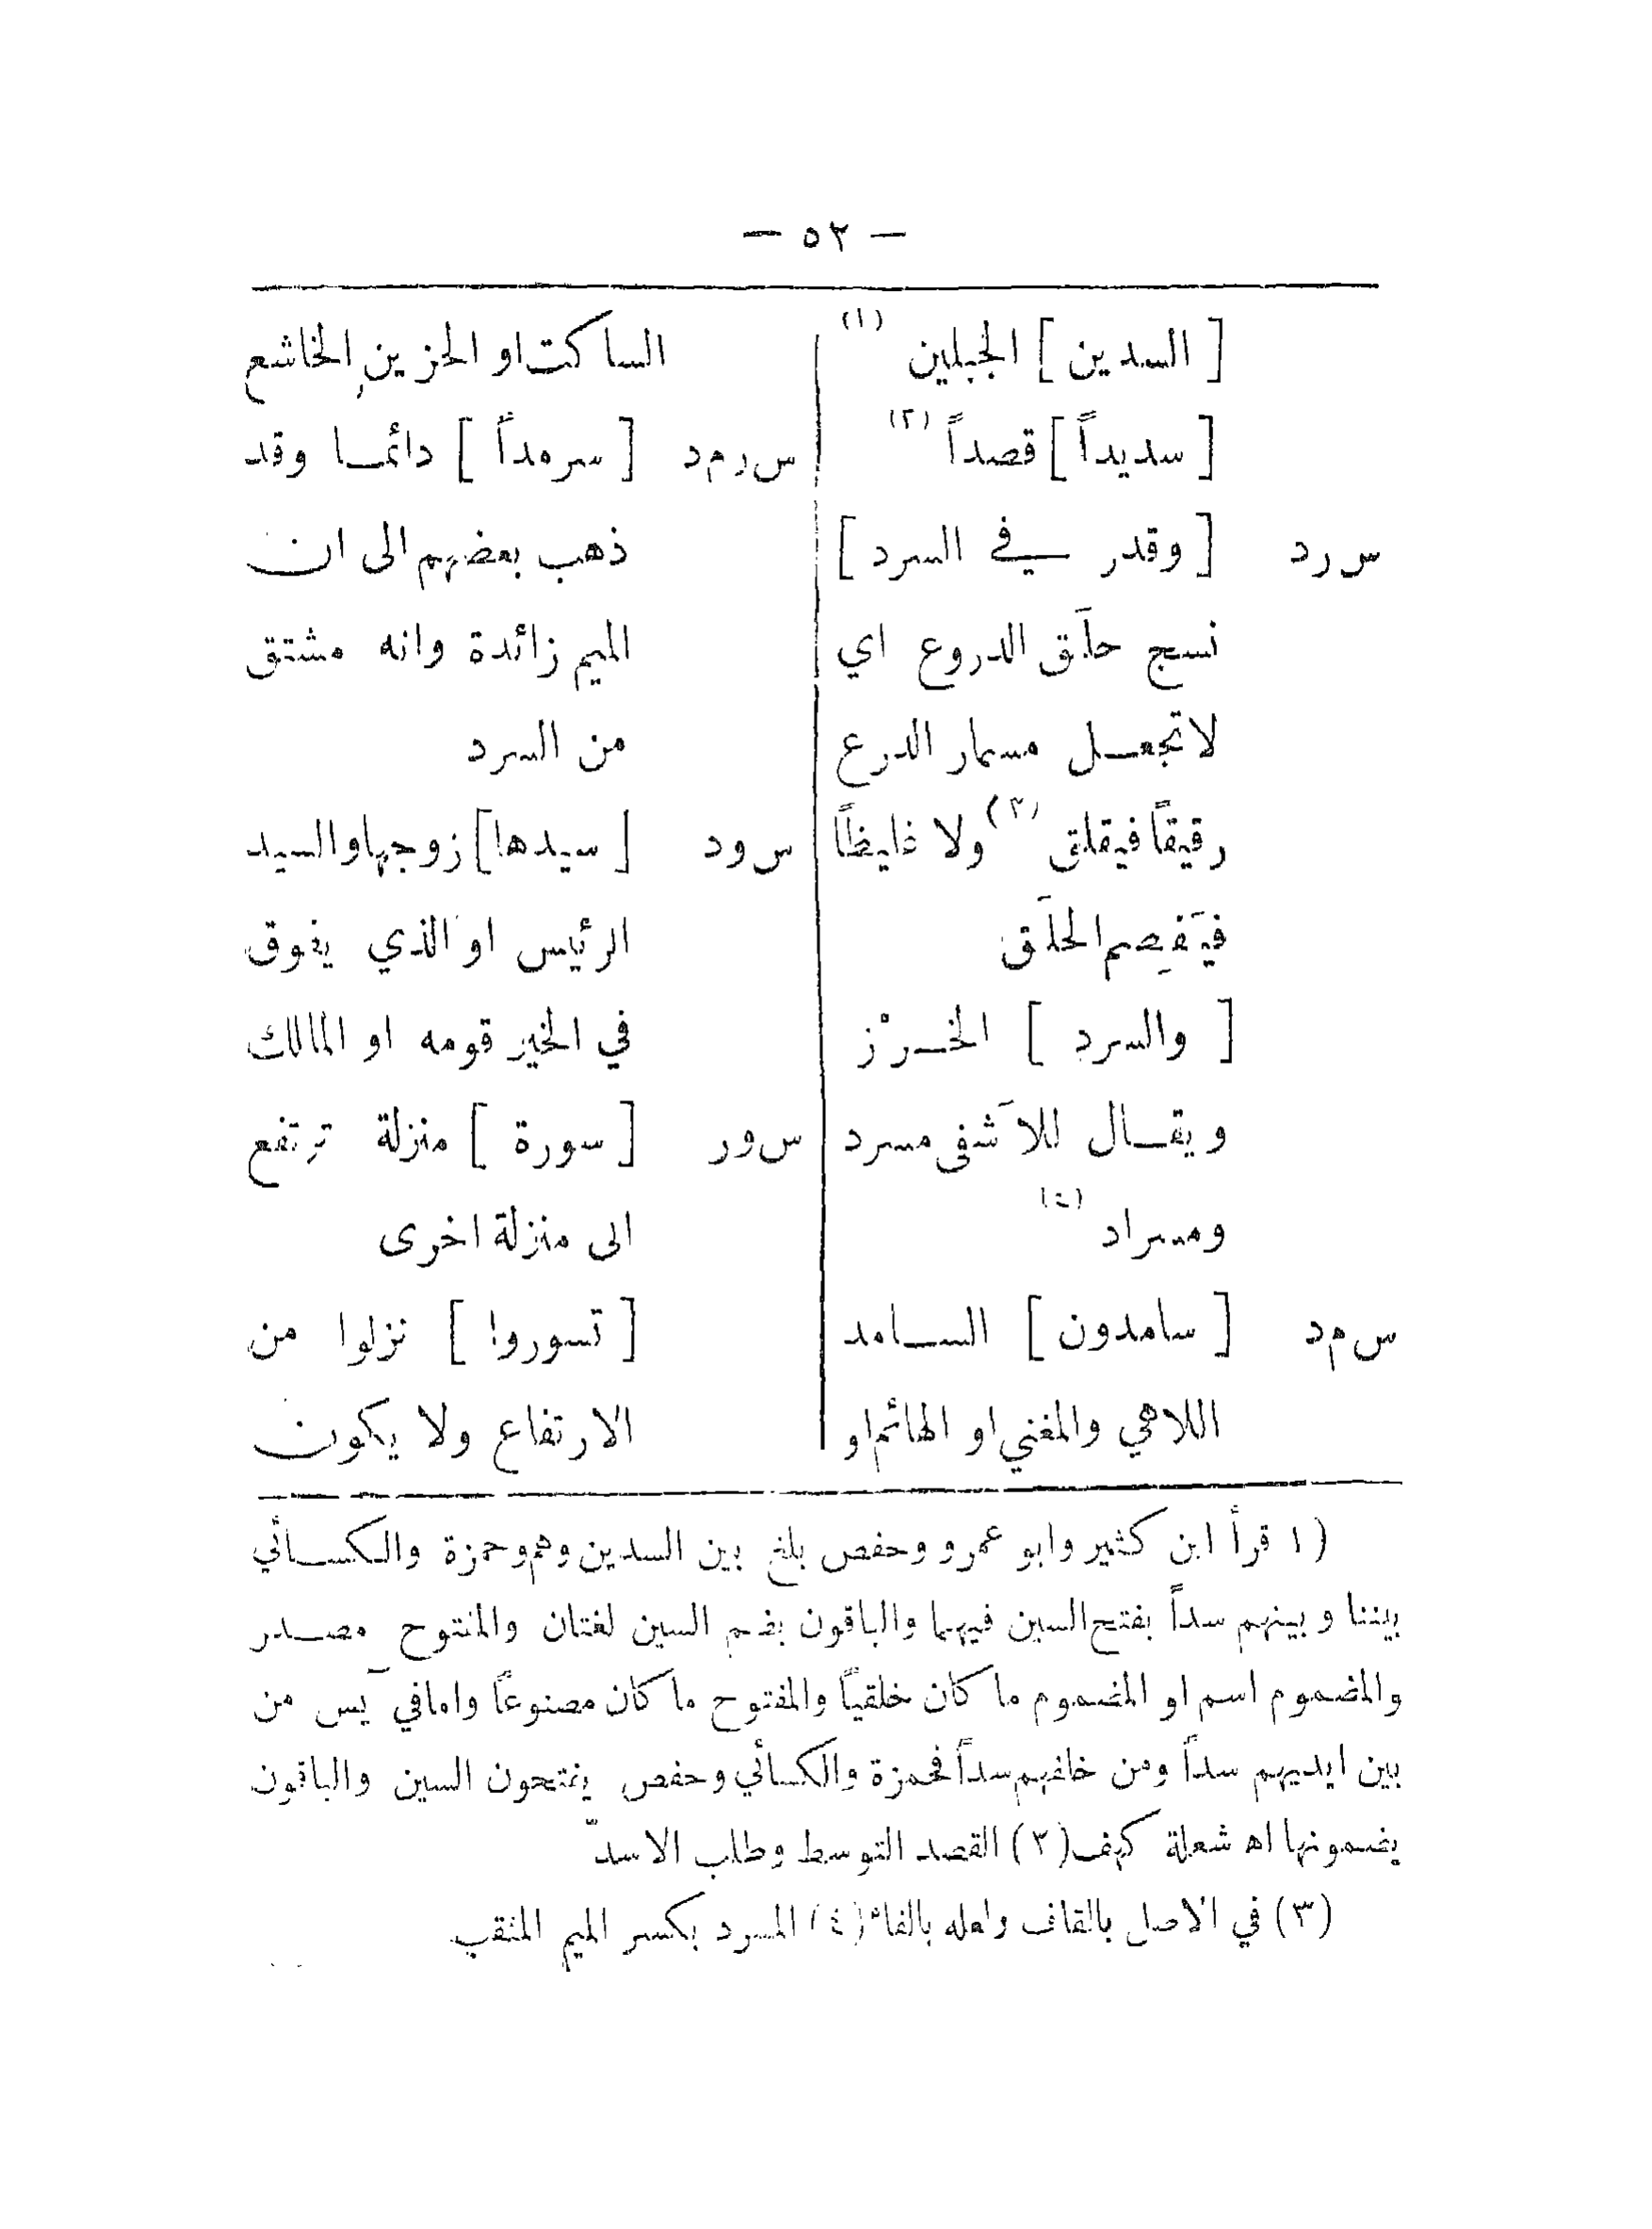 — ٥٢ —
[ السدين ] الجبلين (١)
[ سديداً ] قصداً (٢)
س رد [ وقدر في السرد ]
نسج حلَق الدروع اي
لا تجعل مسمار الدرع
رقيقاً فيقلق (٣) ولا غليظاً
فيَفصِم الحلَق
[ والسرد ] الخرْز
ويقال للاَشفى مسرد
ومسراد (٤)
س م د [ سامدون ] السامد
اللاهي والمغني او الهائم او
الساكت او الحزين الخاشع
س ر م د [ سرمداً ] دائما وقد
ذهب بعضهم الى ان
الميم زائدة وانه مشتق
من السرد
س ود [ سيدها ] زوجها والسيد
الرئيس او الذي يفوق
في الخير قومه او المالك
س ور [ سورة ] منزلة ترتفع
الى منزلة اخرى
[ تسوروا ] نزلوا من
الارتفاع ولا يكون
(١ قرأ ابن كثير وابو عمرو وحفص بلغ بين السدين وهم وحمزة والكسائي
بيننا وبينهم سداً بفتح السين فيهما والباقون بضم السين لغتان والمفتوح مصدر
والمضموم اسم او المضموم ما كان خلقياً والمفتوح ما كان مصنوعاً واما في يَس من
بين ايديهم سداً ومن خلفهم سداً فحمزة والكسائي وحفص يفتحون السين والباقون
يضمونها اه شعلة كهف (٢) القصد التوسط وطلب الاسدّ
(٣) في الاصل بالقاف ولعله بالفاء (٤) المسرد بكسر الميم المثقب